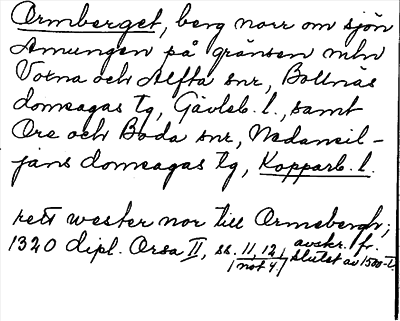 Ormberget, berg norr om sjön
Amungen på gränsen mln
Voxna och Alfta snr, Bollnäs
domsagas tg, Gävleb. l., samt
Ore och Boda snr, Nedansil-
jans domsagas tg, Kopparb. l.
rett wester nor till Ormsbergh;
1320 dipl. Orsa II, ss. 11, 12, avskr. fr.
not 4, slutet av 1500-t.